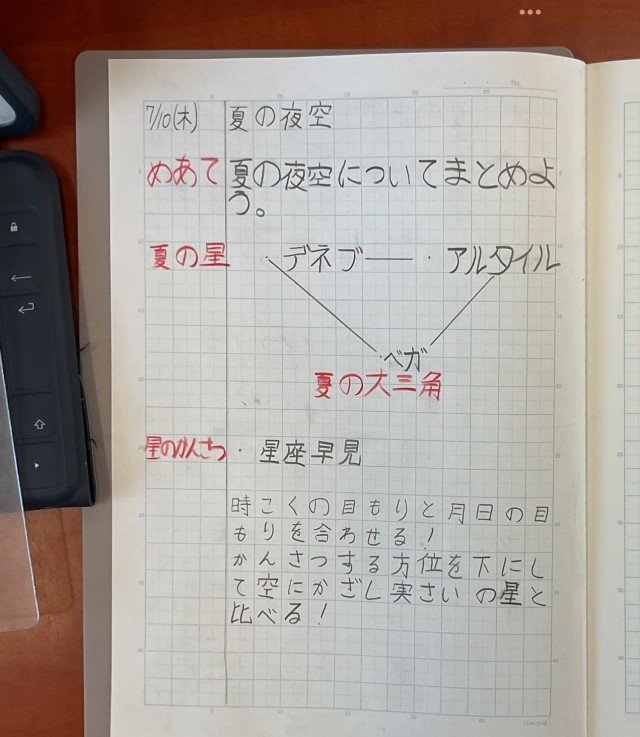 7/10(木) 夏の夜空
めあて 夏の夜空についてまとめよ
う。
夏の星 ・デネブ ・アルタイル
ベガ
夏の大三角
星のかんさつ ・星座早見
時こくの目もりと月日の目
もりを合わせる!
かんさつする方位を下にし
て空にかざし実さいの星と
比べる!